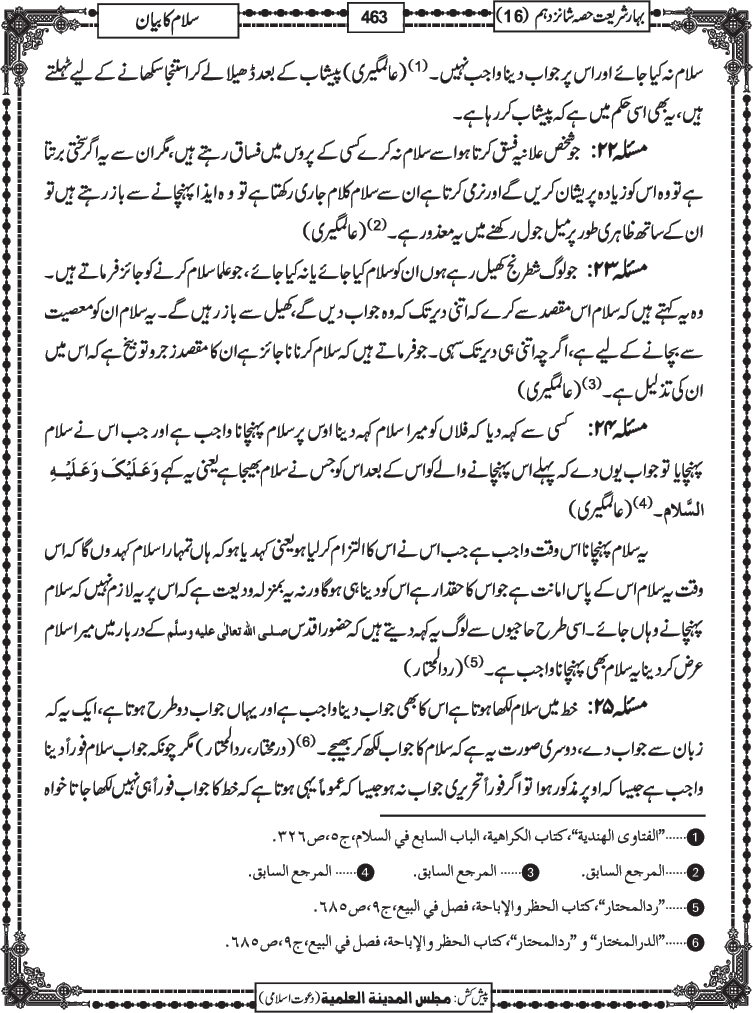 بہار شریعت حصہ شانزدہم (16)
463
سلام کا بیان
سلام نہ کیا جائے اور اس پر جواب دینا واجب نہیں۔(1) (عالمگیری) پیشاب کے بعد ڈھیلا لے کر استنجا سکھانے کے لیے ٹہلتے
ہیں، یہ بھی اسی حکم میں ہے کہ پیشاب کر رہا ہے۔
مسئلہ ۲۲: جو شخص علانیہ فسق کرتا ہو اسے سلام نہ کرے کسی کے پروس میں فساق رہتے ہیں، مگر ان سے یہ اگر سختی برتتا
ہے تو وہ اس کو زیادہ پریشان کریں گے اور نرمی کرتا ہے ان سے سلام کلام جاری رکھتا ہے تو وہ ایذا پہنچانے سے باز رہتے ہیں تو
ان کے ساتھ ظاہری طور پر میل جول رکھنے میں یہ معذور ہے۔(2) (عالمگیری)
مسئلہ ۲۳: جو لوگ شطرنج کھیل رہے ہوں ان کو سلام کیا جائے یا نہ کیا جائے، جو علما سلام کرنے کو جائز فرماتے ہیں۔
وہ یہ کہتے ہیں کہ سلام اس مقصد سے کرے کہ اتنی دیر تک کہ وہ جواب دیں گے، کھیل سے باز رہیں گے۔ یہ سلام ان کو معصیت
سے بچانے کے لیے ہے، اگرچہ اتنی ہی دیر تک سہی۔ جو فرماتے ہیں کہ سلام کرنا ناجائز ہے ان کا مقصد زجر و توبیخ ہے کہ اس میں
ان کی تذلیل ہے۔(3) (عالمگیری)
مسئلہ ۲۴: کسی سے کہہ دیا کہ فلاں کو میرا سلام کہہ دینا اوس پر سلام پہنچانا واجب ہے اور جب اس نے سلام
پہنچایا تو جواب یوں دے کہ پہلے اس پہنچانے والے کو اس کے بعد اس کو جس نے سلام بھیجا ہے یعنی یہ کہے وَعَلَیْکَ وَعَلَیْہِ
السَّلام۔(4) (عالمگیری)
یہ سلام پہنچانا اس وقت واجب ہے جب اس نے اس کا التزام کر لیا ہو یعنی کہدیا ہو کہ ہاں تمہارا سلام کہدوں گا کہ اس
وقت یہ سلام اس کے پاس امانت ہے جو اس کا حقدار ہے اس کو دینا ہی ہوگا ورنہ یہ بمنزلہ ودیعت ہے کہ اس پر یہ لازم نہیں کہ سلام
پہنچانے وہاں جائے۔ اسی طرح حاجیوں سے لوگ یہ کہہ دیتے ہیں کہ حضور اقدس صلی اللہ تعالٰی علیہ وسلّم کے دربار میں میرا سلام
عرض کر دینا یہ سلام بھی پہنچانا واجب ہے۔(5) (ردالمحتار)
مسئلہ ۲۵: خط میں سلام لکھا ہوتا ہے اس کا بھی جواب دینا واجب ہے اور یہاں جواب دو طرح ہوتا ہے، ایک یہ کہ
زبان سے جواب دے، دوسری صورت یہ ہے کہ سلام کا جواب لکھ کر بھیجے۔(6) (درمختار، ردالمحتار) مگر چونکہ جواب سلام فوراً دینا
واجب ہے جیسا کہ اوپر مذکور ہوا تو اگر فوراً تحریری جواب نہ ہو جیسا کہ عموماً یہی ہوتا ہے کہ خط کا جواب فوراً ہی نہیں لکھا جاتا خواہ
1 ......"الفتاوی الھندیة"، کتاب الکراھیة، الباب السابع في السلام، ج٥، ص٣٢٦.
2 ......المرجع السابق. 3 ...... المرجع السابق. 4 ...... المرجع السابق.
5 ......"ردالمحتار"، کتاب الحظر والإباحة، فصل في البیع، ج٩، ص٦٨٥.
6 ......"الدرالمختار" و "ردالمحتار"، کتاب الحظر والإباحة، فصل في البیع، ج٩، ص٦٨٥.
پیش کش: مجلس المدینة العلمیة (دعوت اسلامی)